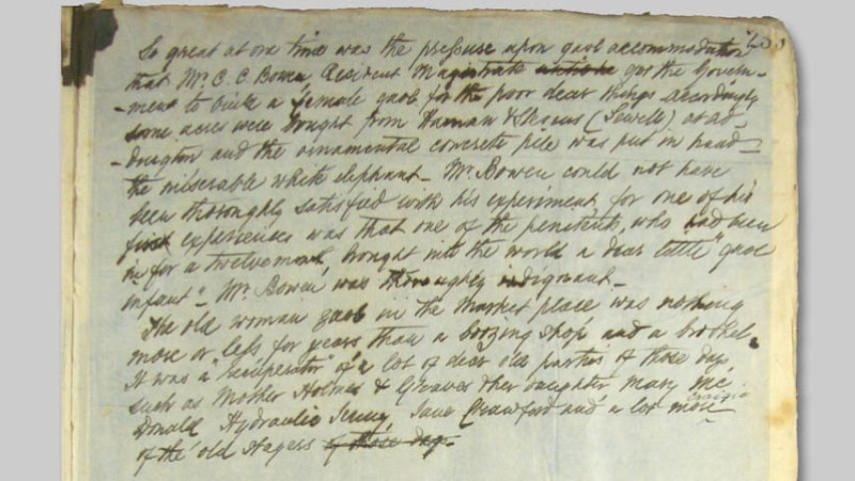 So great at one time was the pressure upon gaol accommodation
that Mr. C. C. Bowen Resident Magistrate got the Govern-
-ment to build a female gaol for the poor dear things accordingly
some acres were bought from Hannan & Stevens (Sewell) at ad
-dington and the ornamental concrete pile was put in hand
the miserable white elephant - Mr. Bowen could not have
been thoroughly satisfied with his experiment, for one of his
first experiences was that one of the penitents, who had been
in for a twelvemonth, brought into the world a dear little "gaol
infant". Mr. Bowen was thoroughly indignant -
The old woman gaol in the market place was nothing
more or less for years than a boozing shop and a brothel.
It was a "recuperator" of a lot of dear old parties of those day
such as Mother Holmes & Greaves & her daughter, Mary Mc.
Donald Hydraulic Jenny, Jane Crawford and a lot more
of the old stagers of those days.